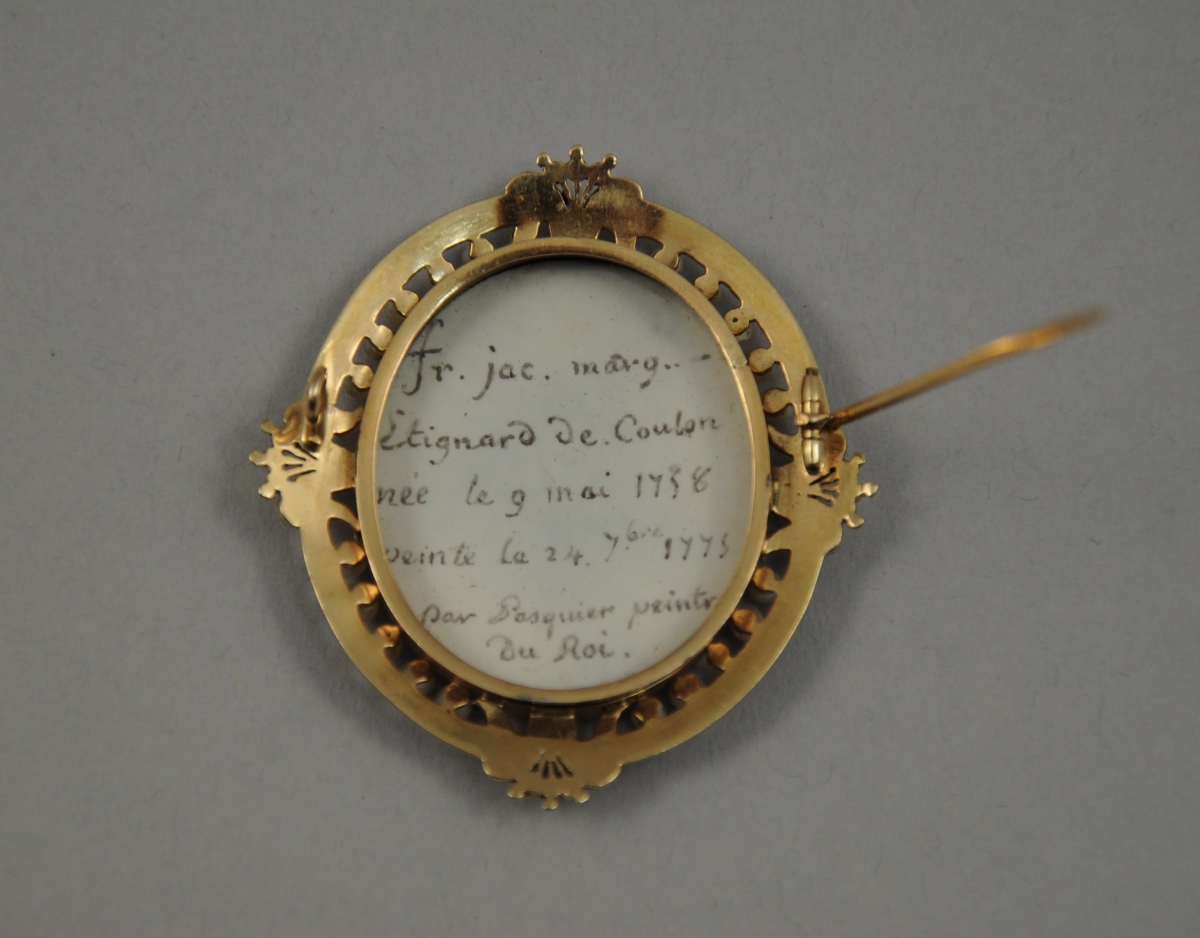 fr. jac. marg..
Etignard de. Coulon
née le 9 mai 1758
peinte le 24. 7bre 1775
par Pasquier peintr
Du Roi.